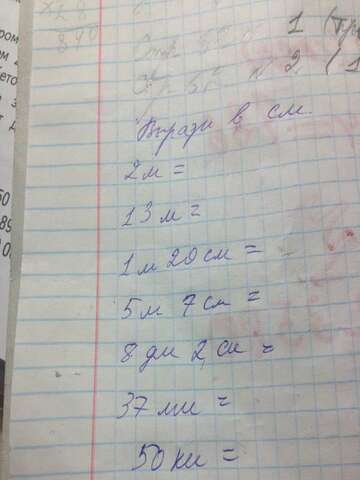 х 28
840
1
2
Вырази в см.
2м =
13м =
1м 20см =
5м 7см =
8 дм 2 см =
37мм =
50км =